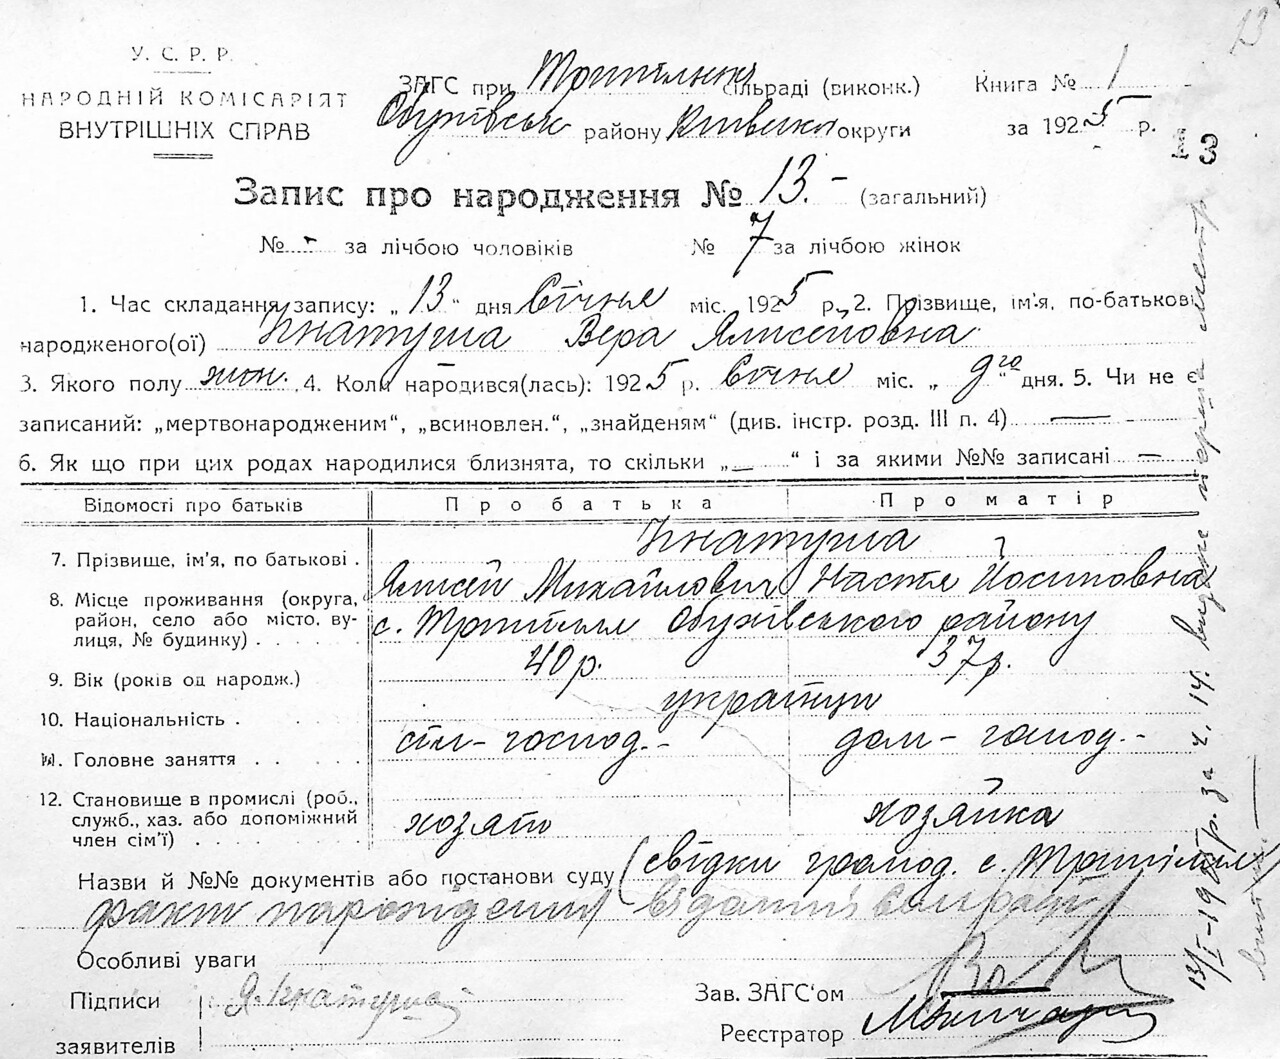 13
У. С. Р. Р.
НАРОДНІЙ КОМІСАРІЯТ
ВНУТРІШНІХ СПРАВ
ЗАГС при Трипільскій сільраді (виконк.)
Обухівськ району Київської округи
Книга № 1
за 1925 р.
13
Запис про народження № 13.- (загальний)
№ - за лічбою чоловіків № 7 за лічбою жінок
1. Час складання запису: „13“ дня Січня міс. 1925 р. 2. Прізвище, ім'я, по-батькові
народженого(ої) Ігнатуша Вера Алисейовна
3. Якого полу жін. 4. Коли народився(лась): 1925 р. Січня міс. „9го“ дня. 5. Чи не є
записаний: „мертвонародженим“, „всиновлен.“, „знайденям“ (див. інстр. розд. III п. 4) —
6. Як що при цих родах народилися близнята, то скільки „—“ і за якими №№ записані —
Відомості про батьків Про батька Про матір
7. Прізвище, ім'я, по батькові . Ігнатуша
Алисей Михайлович Настя Йосиповна
8. Місце проживання (округа, район, село або місто, вулиця, № будинку) . . . . . с. Трипілля Обухівського району
9. Вік (років од народж.) 40 р. 37 р.
10. Національність . українци
11. Головне заняття . . . сіл-господ.- дом-господ.-
12. Становище в промислі (роб., служб., хаз. або допоміжний член сім'ї) . . . . . хозяїн хозяйка
Назви й №№ документів або постанови суду (свідки громод. с. Трипілля
факт нарождения)
Особливі уваги
Підписи
заявителів
Я. Ігнатуша
Зав. ЗАГС'ом
Реєстратор
13/I-1925 р. за ч. 14. видане